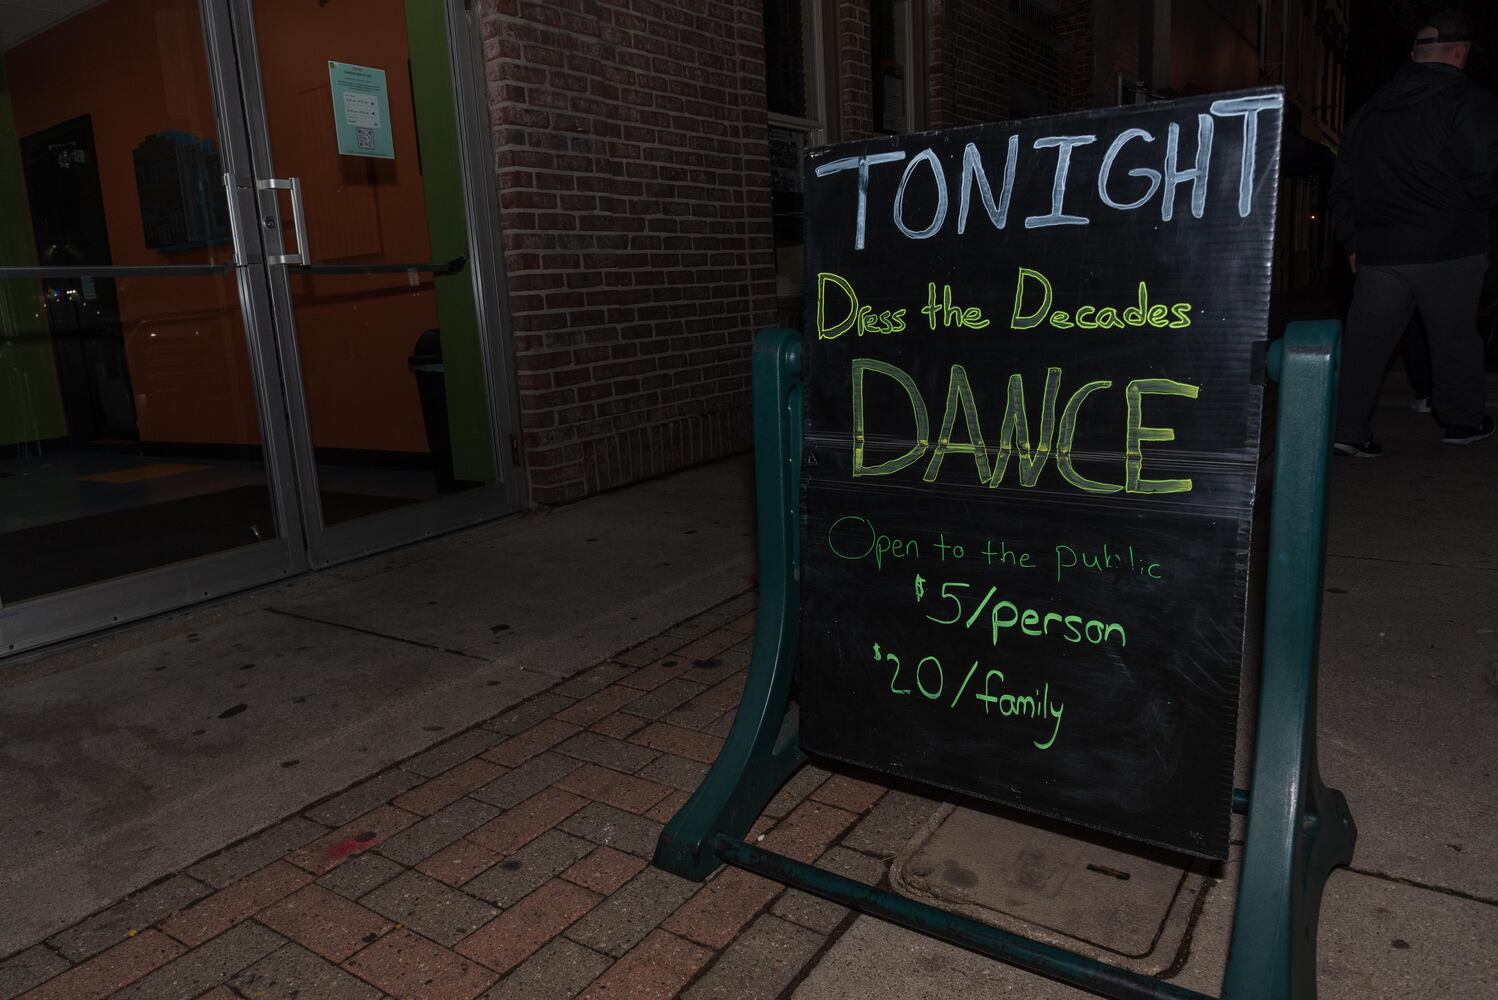 TONIGHT
Dress the Decades
DANCE
Open to the public
$5/person
$20/family